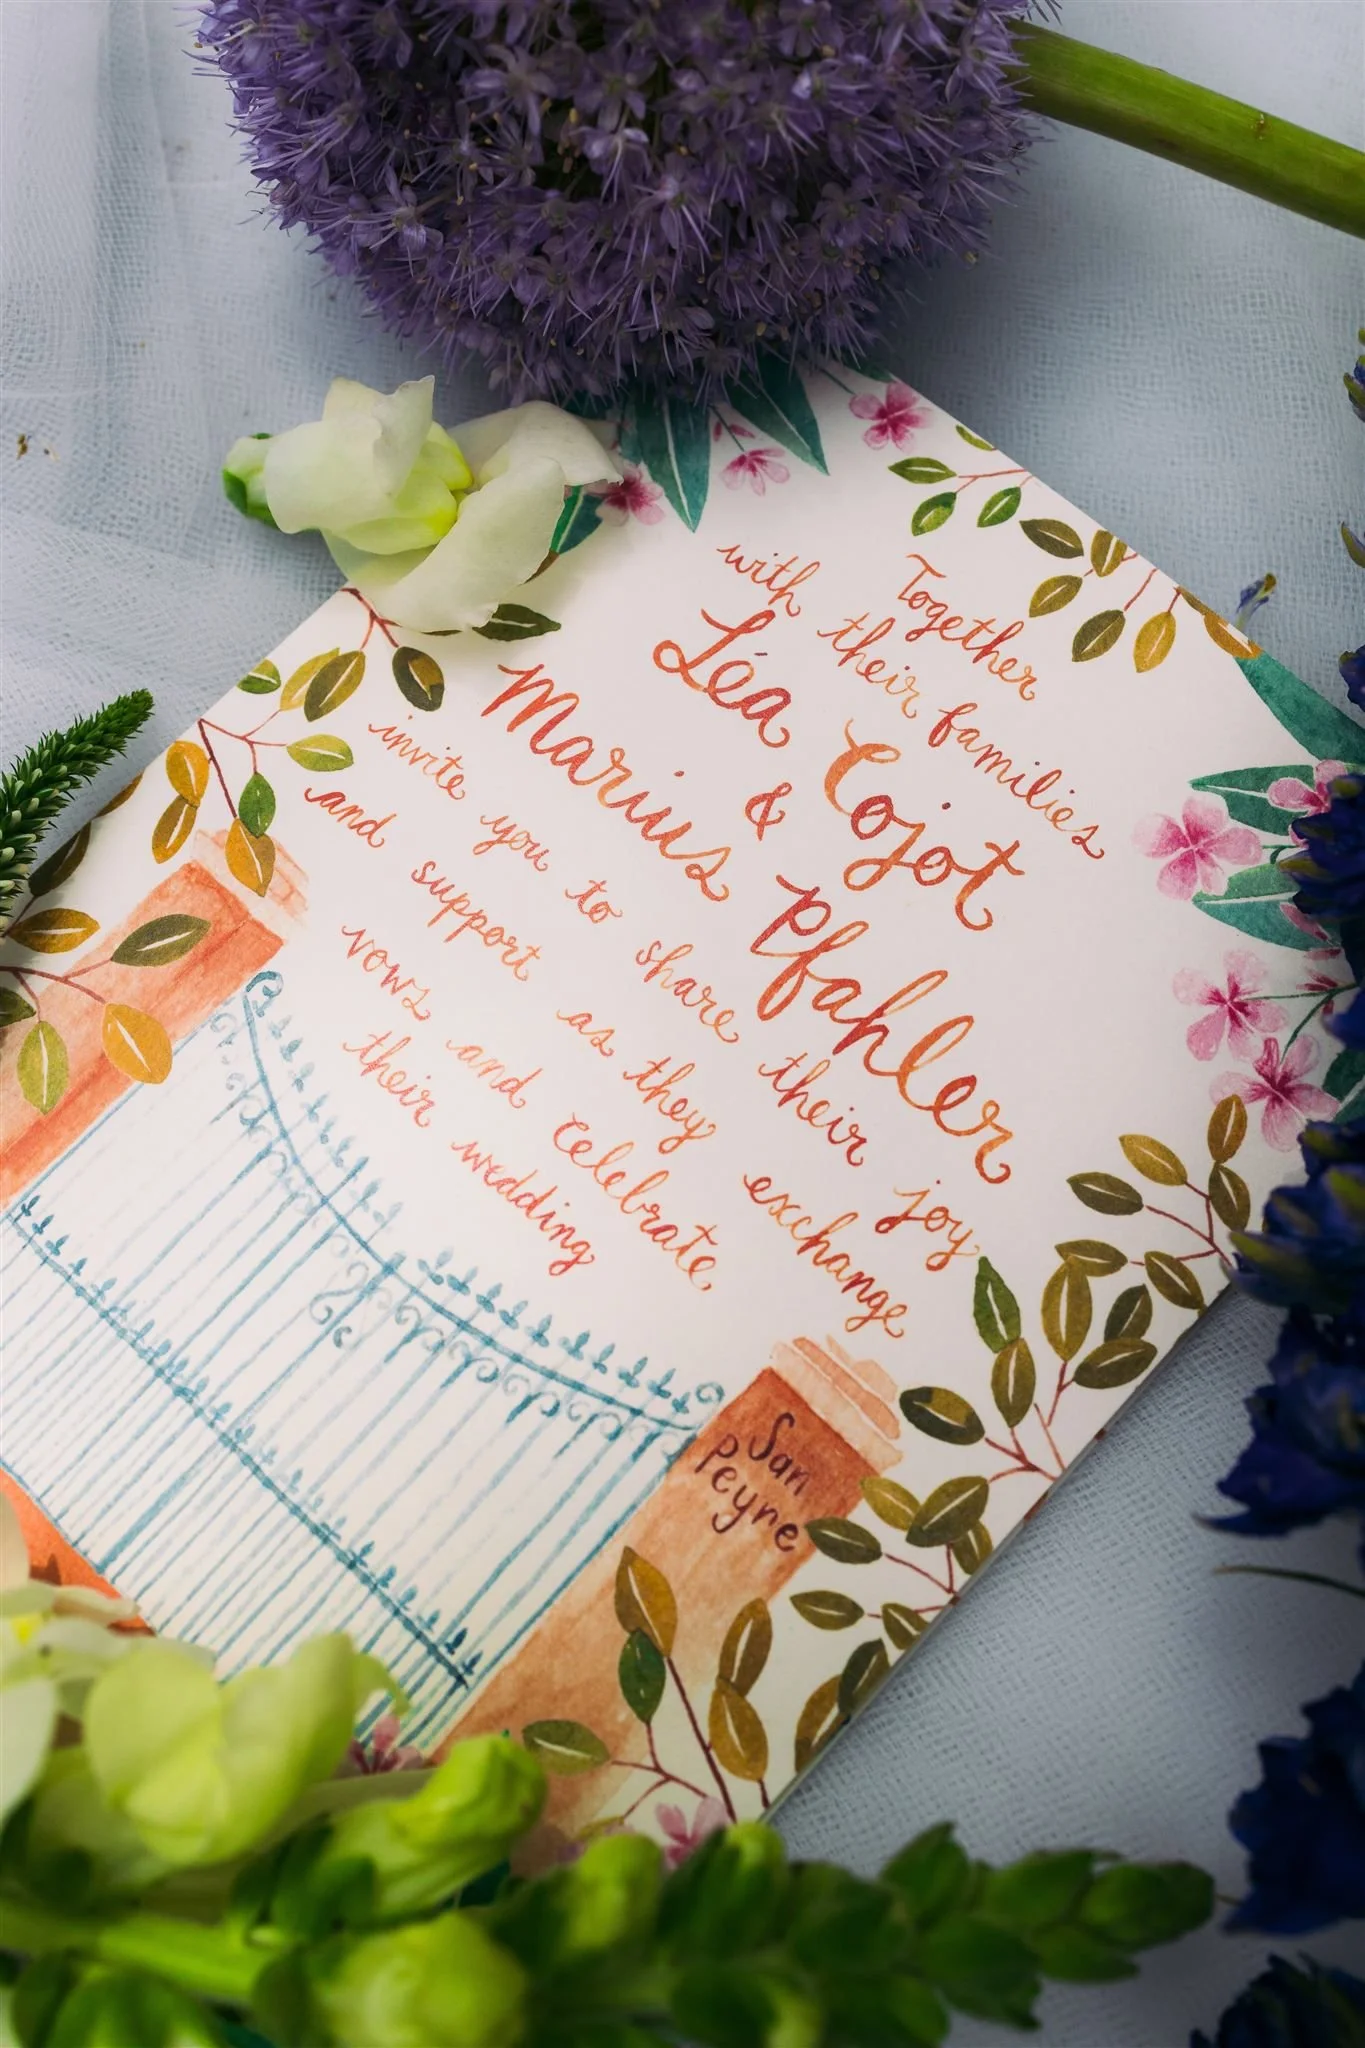 Together
with their families
Léa Cojot
&
Marius Pfahler
invite you to share their joy
and support as they exchange
vows and celebrate
their wedding
San
Peyre